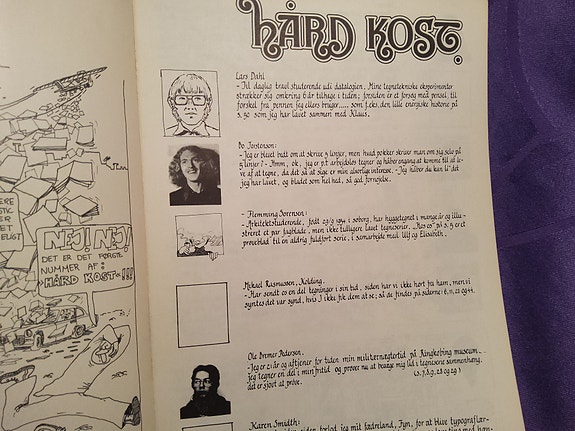 ERE
TIC
ER
ELIGT
NEJ! NEJ!
DET ER DET FØRSTE
NUMMER AF:
»HÅRD KOST«!!!
HÅRD KOST.
Lars Dahl
- Til daglig travl studerende udi datalogien. Mine tegnetekniske eksperimenter
strækker sig omkring 6 år tilbage i tiden; forsiden er et forsøg med pensel, til
forskel fra pennen jeg ellers bruger....., som f.eks. den lille energiske historie på
s. 30 som jeg har lavet sammen med Klaus.
Bo Torstensen:
- Jeg er blevet bedt om at skrive 5 linjer, men hvad pokker skriver man om sig selv på
5 linjer? - Hmm, ok, jeg er p.t. arbejdsløs tegner og håber engang at komme til at le-
ve af at tegne, da det så at sige er min alvorlige interesse. - Jeg håber du kan li' det
jeg har lavet, og bladet som helhed, så god fornøjelse.
- Flemming Sørensen:
- Arkitektstuderende, født 29/9 1954 i Søborg, har hyggetegnet i mange år og illu-
streret et par fagblade, men ikke tidligere lavet tegneserier. på s. 5 er et
prøveblad til en aldrig fuldført serie, i samarbejde med Ulf og Elisabeth.
Mikael Rasmussen, Kolding.
- Har sendt os en del tegninger i sin tid, siden har vi ikke hørt fra ham, men vi
syntes det var synd, hvis I ikke fik dem at se; så de findes på siderne: 6, 11, 22 og 44.
Ole Bremer Pedersen.
- Jeg er 21 år og aftjener for tiden min militærnægtertid på Ringkøbing museum.
Jeg tegner en del i min fritid og prøver nu at bevæge mig ud i tegneserie sammenhæng.
det er sjovt at prøve. (s. 7, 8, 9, 28 og 29)
Karen Smidth:
siden forlod jeg mit fædreland, Fyn, for at blive typograflær-